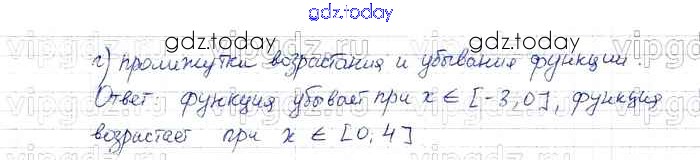 gdz.today
г) промижутки возрастания и убывания функции.
Ответ: функция убывает при x ∈ [-3,0], функция
возрастает при x ∈ [0,4]